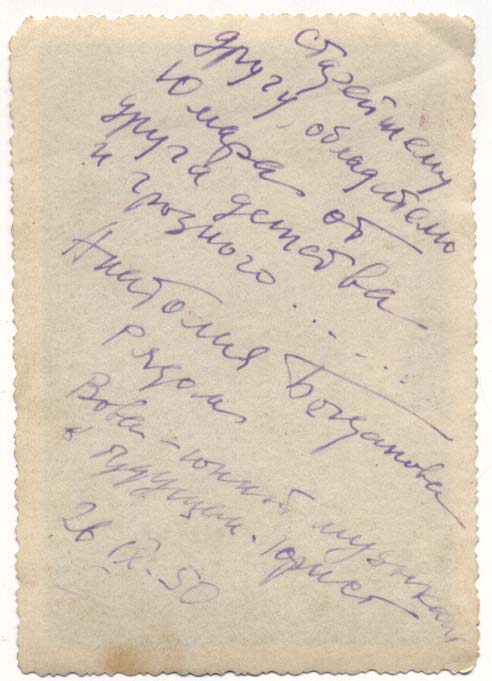 старейшему
другу, обладателю
Юмора от
друга детства
и грозного ......
Анатолия Богданова
рядом
Вова - юный музыкант
в будущем - юрист
26 IX-50